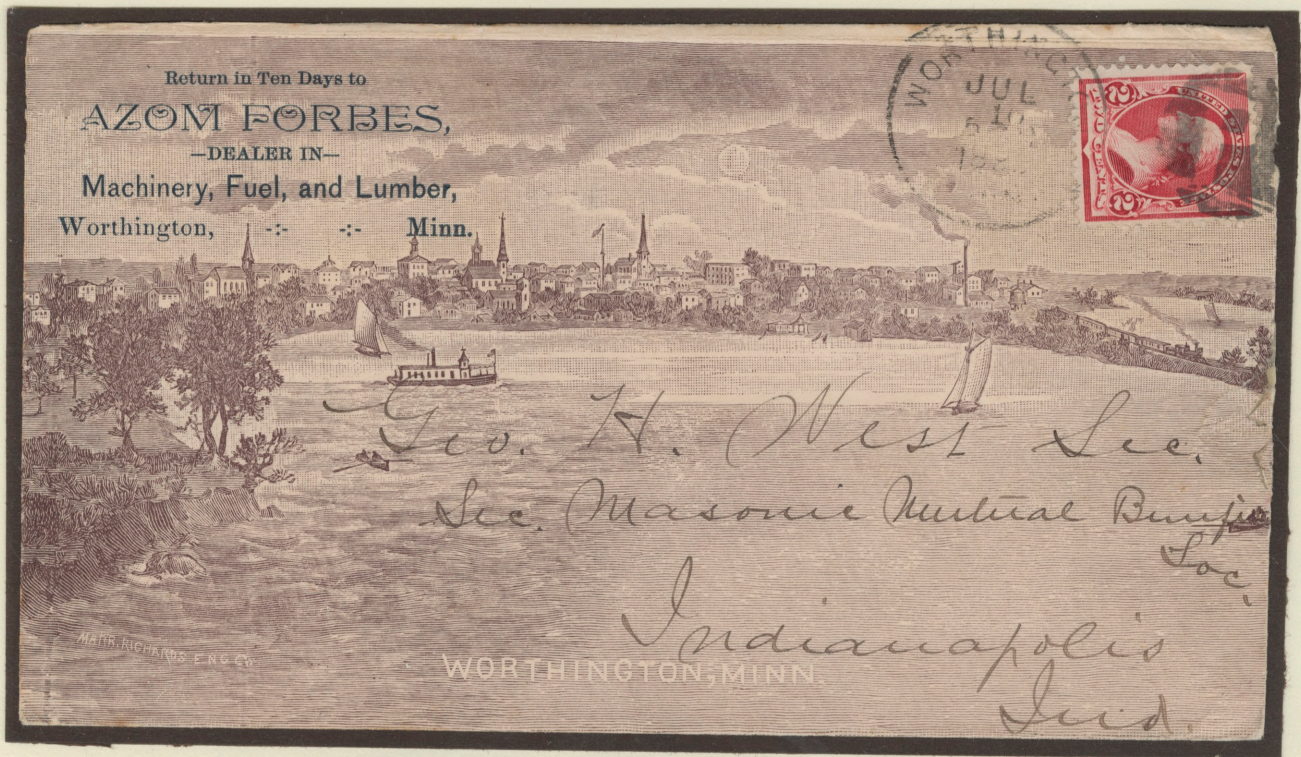 Return in Ten Days to
AZOM FORBES,
—DEALER IN—
Machinery, Fuel, and Lumber,
Worthington, -:- -:- Minn.
WORTHINGT
JUL
10
UNITED STATES POSTAGE
2 2
Geo. H. West Sec.
Sec. Masonic Mutual
Soc.
Indianapolis
Ind.
MARR. RICHARDS ENG Co
WORTHINGTON, MINN.